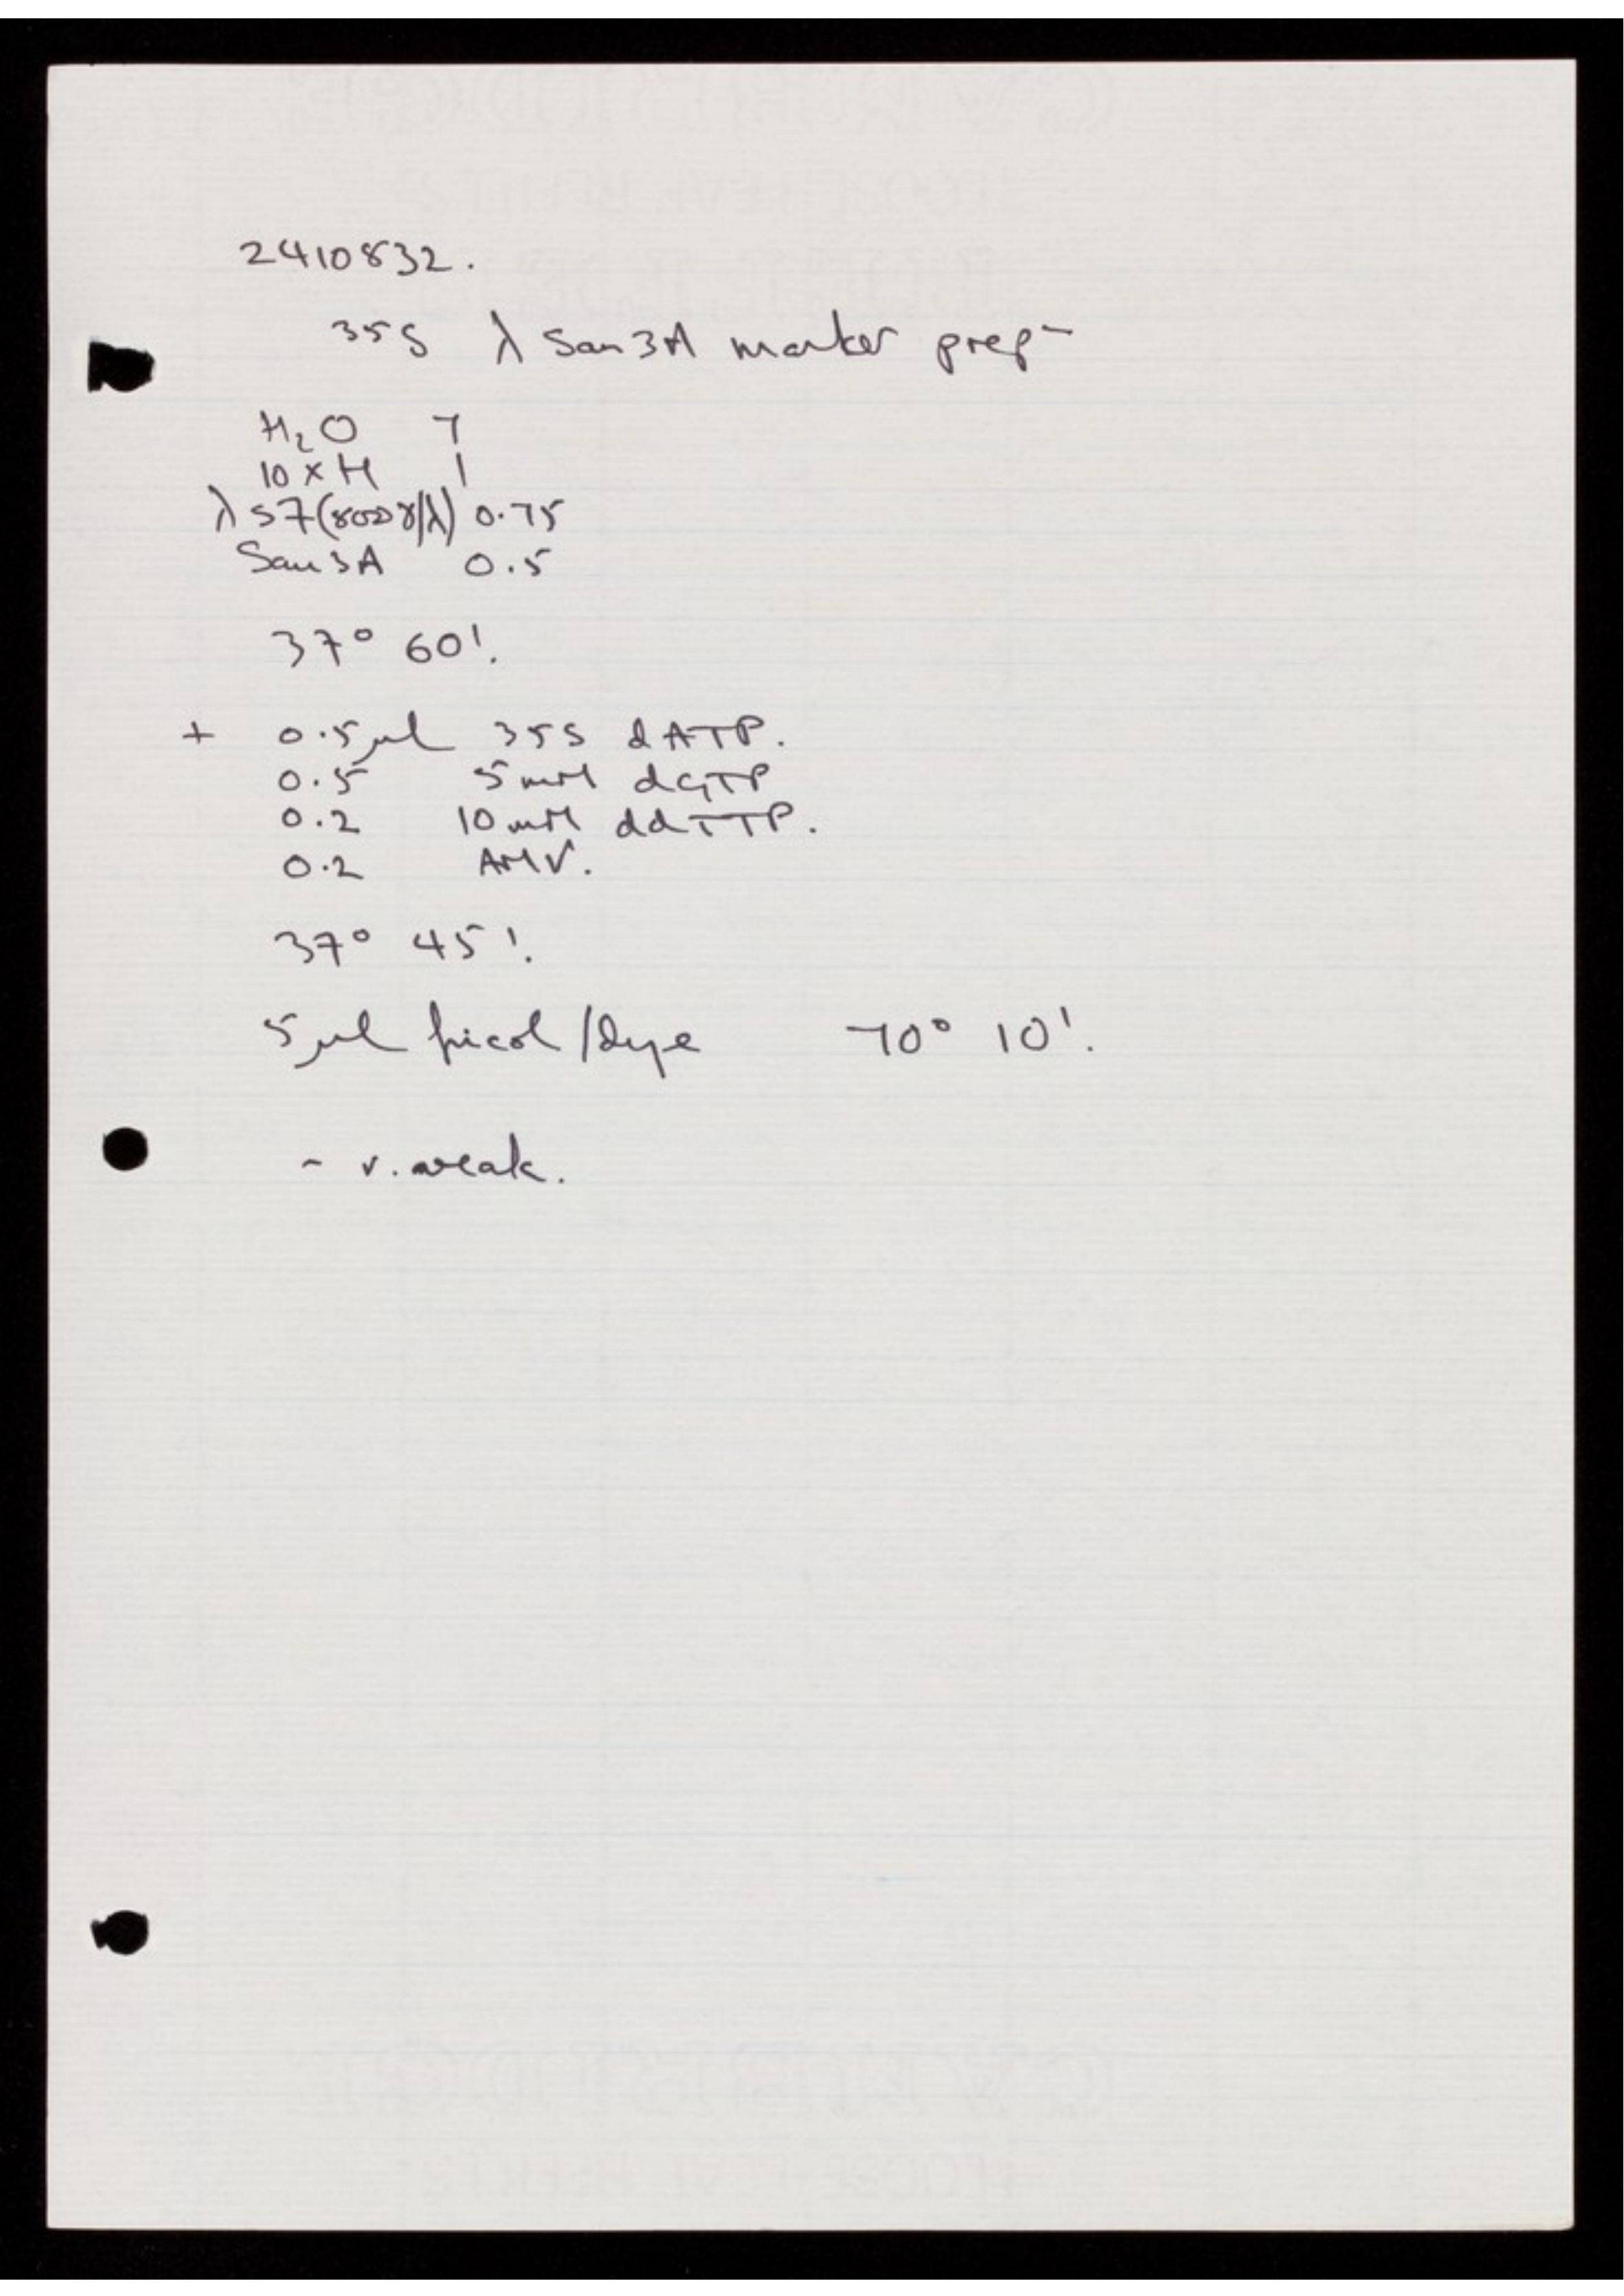 2410832.
35S λ Sau3A marker prep-
H2O 7
10 x H 1
λ 57(800γ/λ) 0.75
Sau3A 0.5
37° 60'.
+ 0.5μl 35S dATP.
0.5 5mM dGTP
0.2 10mM ddTTP.
0.2 AMV.
37° 45'.
5μl ficol/dye 70° 10'.
- v. weak.